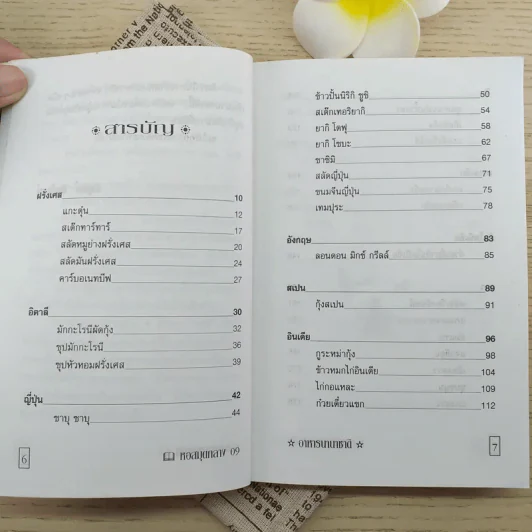 สารบัญ
ฝรั่งเศส 10
แกะตุ๋น 12
สเต๊กทาร์ทาร์ 17
สลัดหมูย่างฝรั่งเศส 20
สลัดมันฝรั่งเศส 24
คาร์บอเนทบีฟ 27
อิตาลี 30
มักกะโรนีผัดกุ้ง 32
ซุปมักกะโรนี 36
ซุปหัวหอมฝรั่งเศส 39
ญี่ปุ่น 42
ชาบู ชาบู 44
6
หอสมุดกลาง 09
ข้าวปั้นนิริกิ ซูชิ 50
สเต๊กเทอริยากิ 54
ยากิ โตฟุ 58
ยากิ โซบะ 62
ซาซิมิ 67
สลัดญี่ปุ่น 71
ขนมจีนญี่ปุ่น 75
เทมปุระ 78
อังกฤษ 83
ลอนดอน มิกซ์ กริลล์ 85
สเปน 89
กุ้งสเปน 91
อินเดีย 96
กูระหม่ากุ้ง 98
ข้าวหมกไก่อินเดีย 104
ไก่กอและ 109
ก๋วยเตี๋ยวแขก 112
อาหารนานาชาติ
7